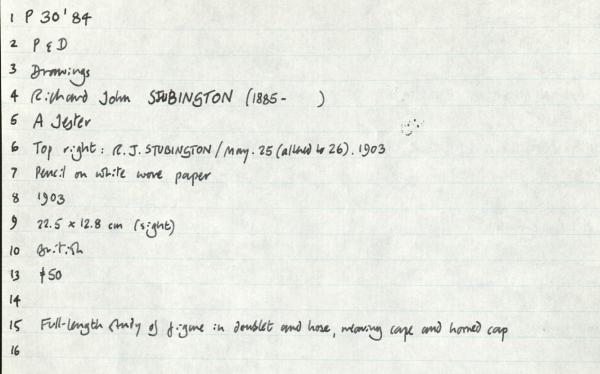 1 P 30'84
2 P & D
3 Drawings
4 Richard John STUBINGTON (1885-     )
5 A Jester
6 Top right: R.J. STUBINGTON / May. 25 (altered to 26). 1903
7 Pencil on white wove paper
8 1903
9 22.5 x 12.8 cm (sight)
10 British
13 50
14
15 Full-length study of figure in doublet and hose, wearing cape and horned cap
16